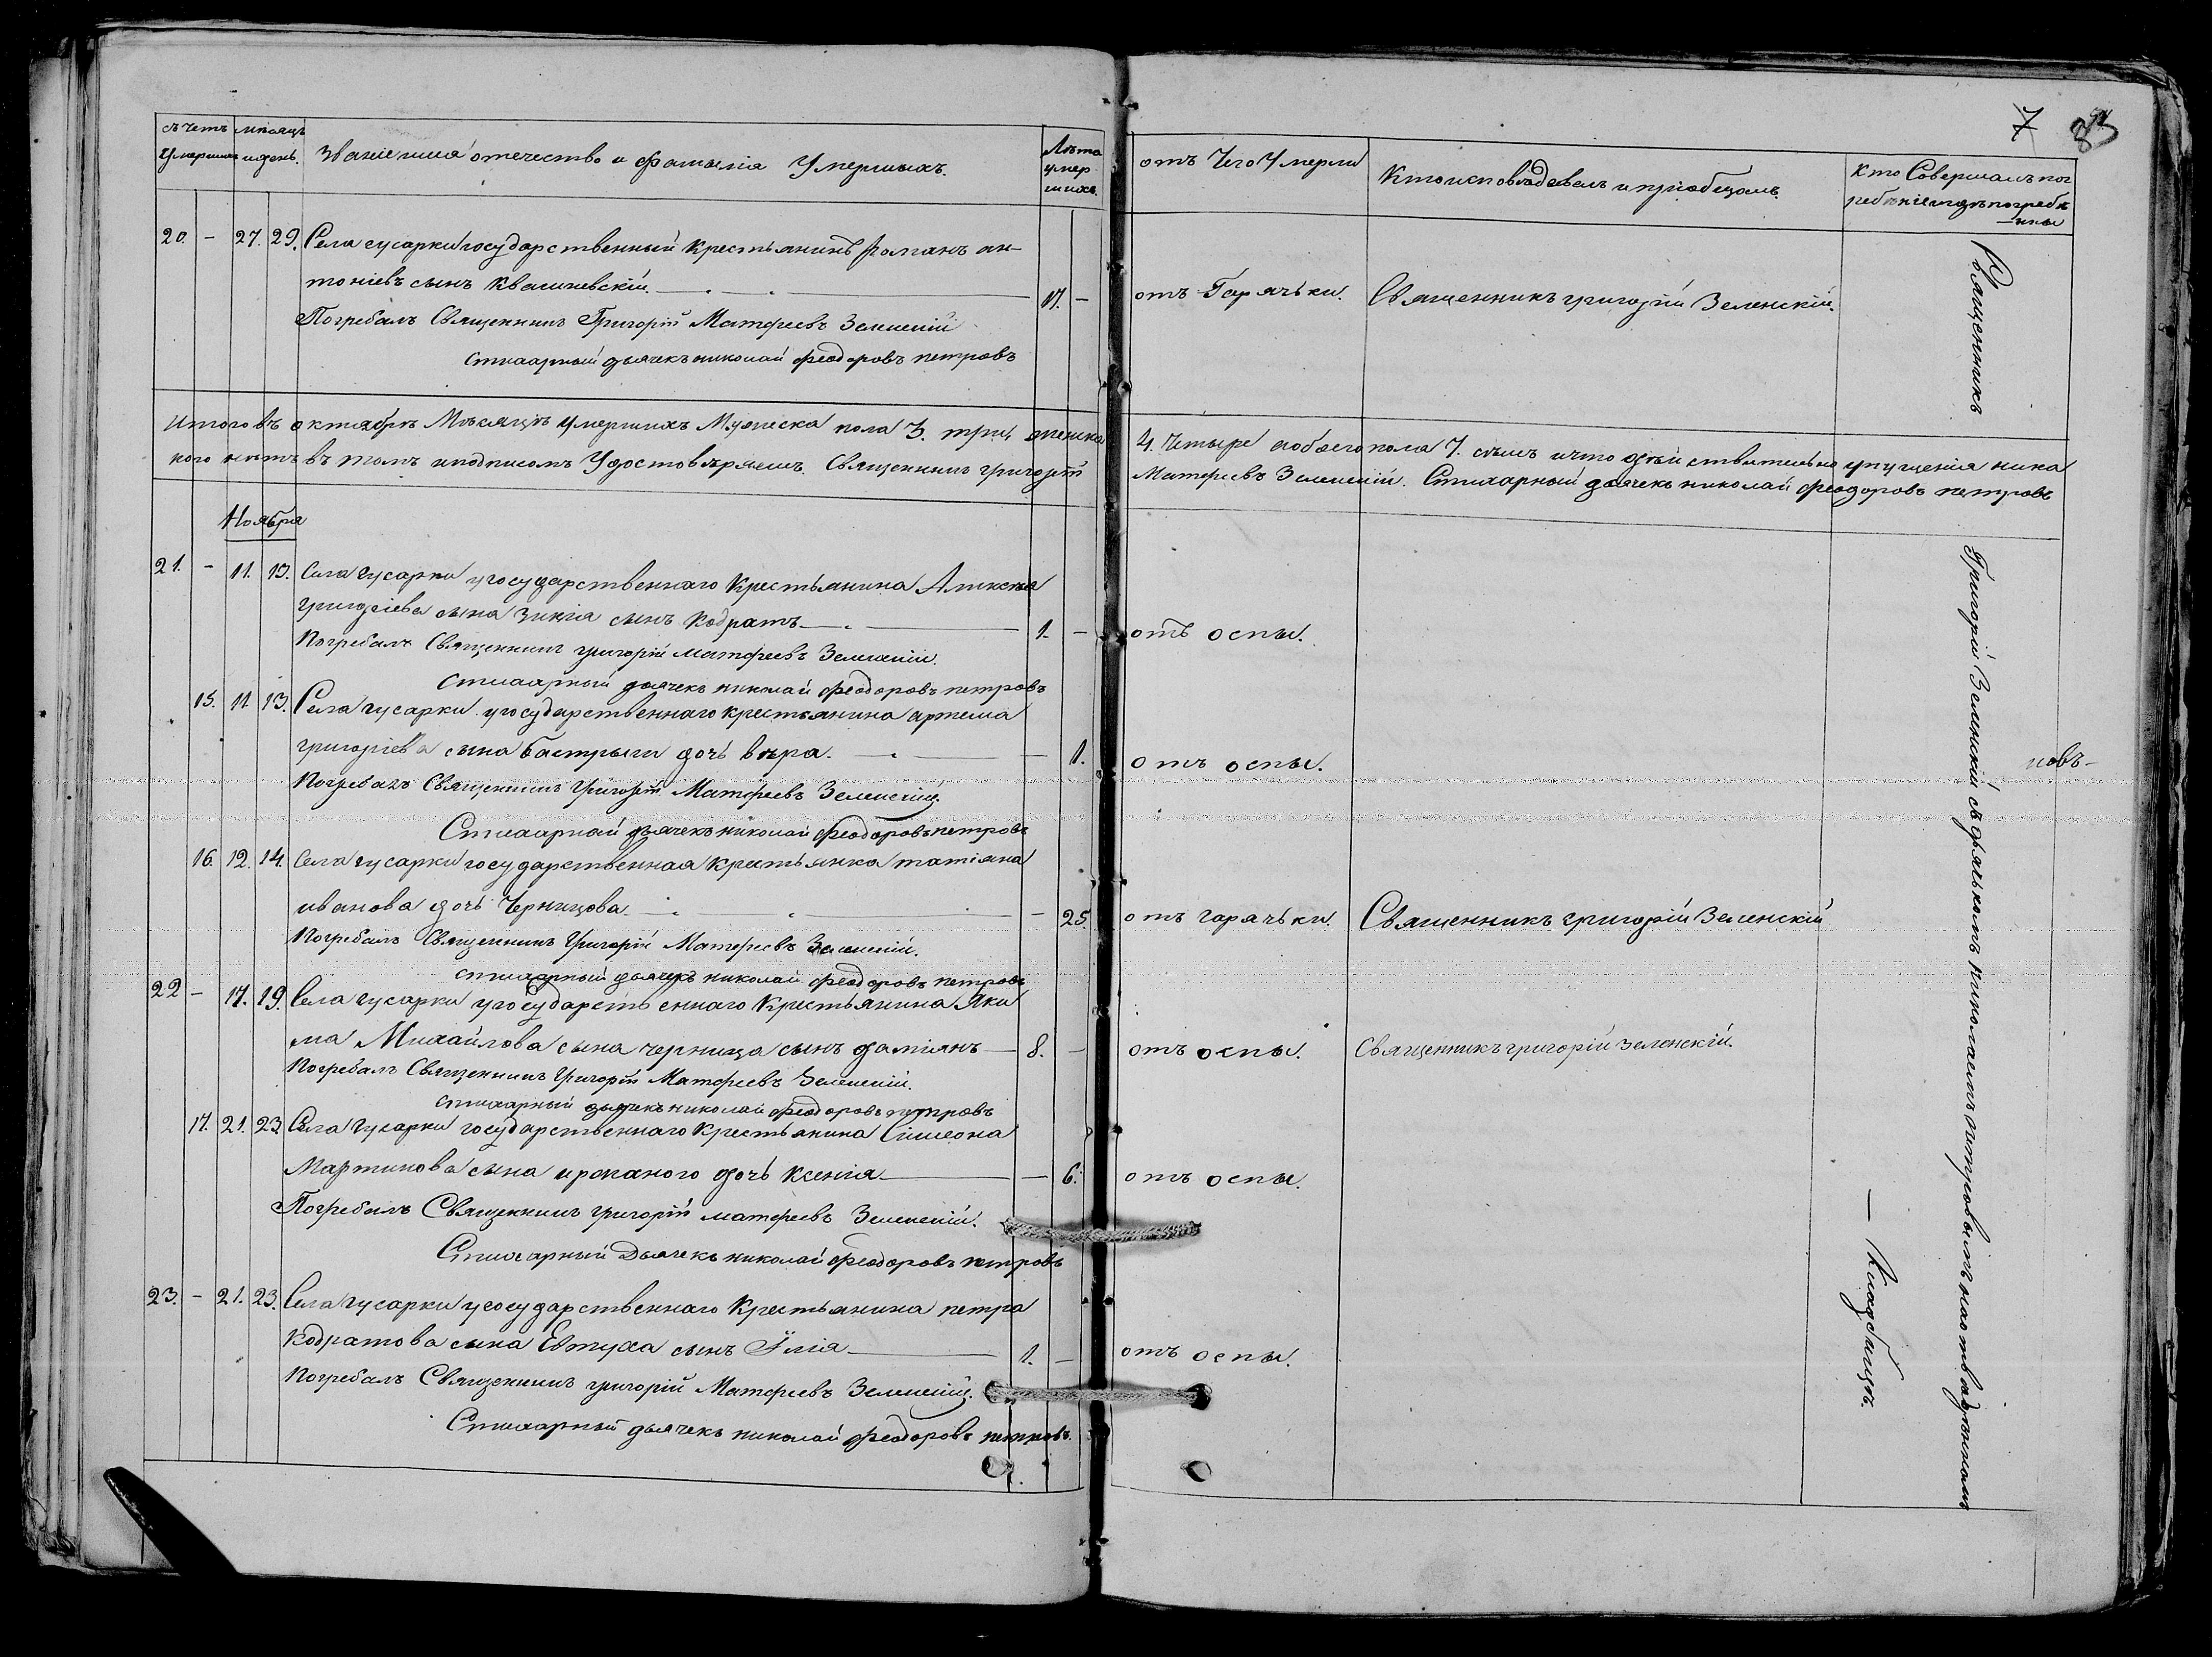 счетъ умершихъ
мѣсяцъ и день.
Званіе имя отечество и фамилія Умершихъ.
Лѣта умер шихъ.
20. – 27. 29. Села гусарки государственный крестьянинъ Романъ ан-
тоніевъ сынъ Квашневскій. 17. –
Погребалъ Священникъ Григорій Матфеевъ Зеленскій
Стихарный дьячекъ николай феодоровъ петровъ
Итого въ октябрѣ Мѣсяцѣ умершихъ Мужеска пола 3. три, женска
кого нѣтъ въ томъ и подписомъ Удостовѣряемъ. Священникъ григорій
Ноября
21. – 11. 13. Села гусарки у государственнаго Крестьянина Алексѣя
григоріева сына Зинія сынъ Кодратъ 1. –
Погребалъ Священникъ григорій матфеевъ Зеленскій.
Стихарный дьячекъ николай феодоровъ петровъ
15. 11. 13. Села гусарки у государственнаго крестьянина артема
григоріева сына бастрыги дочь вѣра. – 1.
Погребалъ Священникъ Григорій Матфеевъ Зеленскій.
Стихарный дьячекъ николай феодоровъ петровъ
16. 12. 14. Села гусарки государственная Крестьянка татіяна
иванова дочь Черницова – 25.
Погребалъ Священникъ Григорій Матфеевъ Зеленскій.
Стихарный дьячекъ николай феодоровъ петровъ
22 – 17. 19. Села гусарки у государственнаго Крестьянина Яки
ма Михайлова сына черница сынъ даміянъ 8. –
Погребалъ Священникъ Григорій Матфеевъ Зеленскій.
Стихарный дьячекъ николай феодоровъ петровъ
17. 21. 23. Села Гусарки государственнаго Крестьянина Симеона
Мартинова сына ироманого дочь Ксенія – 6.
Погребалъ Священникъ григорій матфеевъ Зеленскій.
Стихарный Дьячекъ николай феодоровъ петровъ
23. – 21. 23. Села гусарки у государственнаго Крестьянина петра
Кодратова сына Евтуха сынъ Илія 1. –
Погребалъ Священникъ григорій Матфеевъ Зеленскій.
Стихарный дьячекъ николай феодоровъ петровъ.
7
отъ Чего Умерли
Кто исповѣдовалъ и пріобщалъ.
кто Совершалъ пог
ребеніе и гдѣ погребе
ны
отъ Горячьки. Священникъ григорій Зеленскій.
4. Четыре а обоего пола 7. семь и что дѣйствительно упущенія ника
Матфеевъ Зеленскій. Стихарный дьячекъ николай феодоровъ петровъ
отъ оспы.
отъ оспы.
отъ горячьки. Священникъ григорій Зеленскій
отъ оспы. Священникъ григорій Зеленскій.
отъ оспы.
отъ оспы.
Священникъ
Григорій Зеленскій съ дьячкомъ николаемъ петровымъ на отведенномъ
– Кладбищѣ.
новъ-